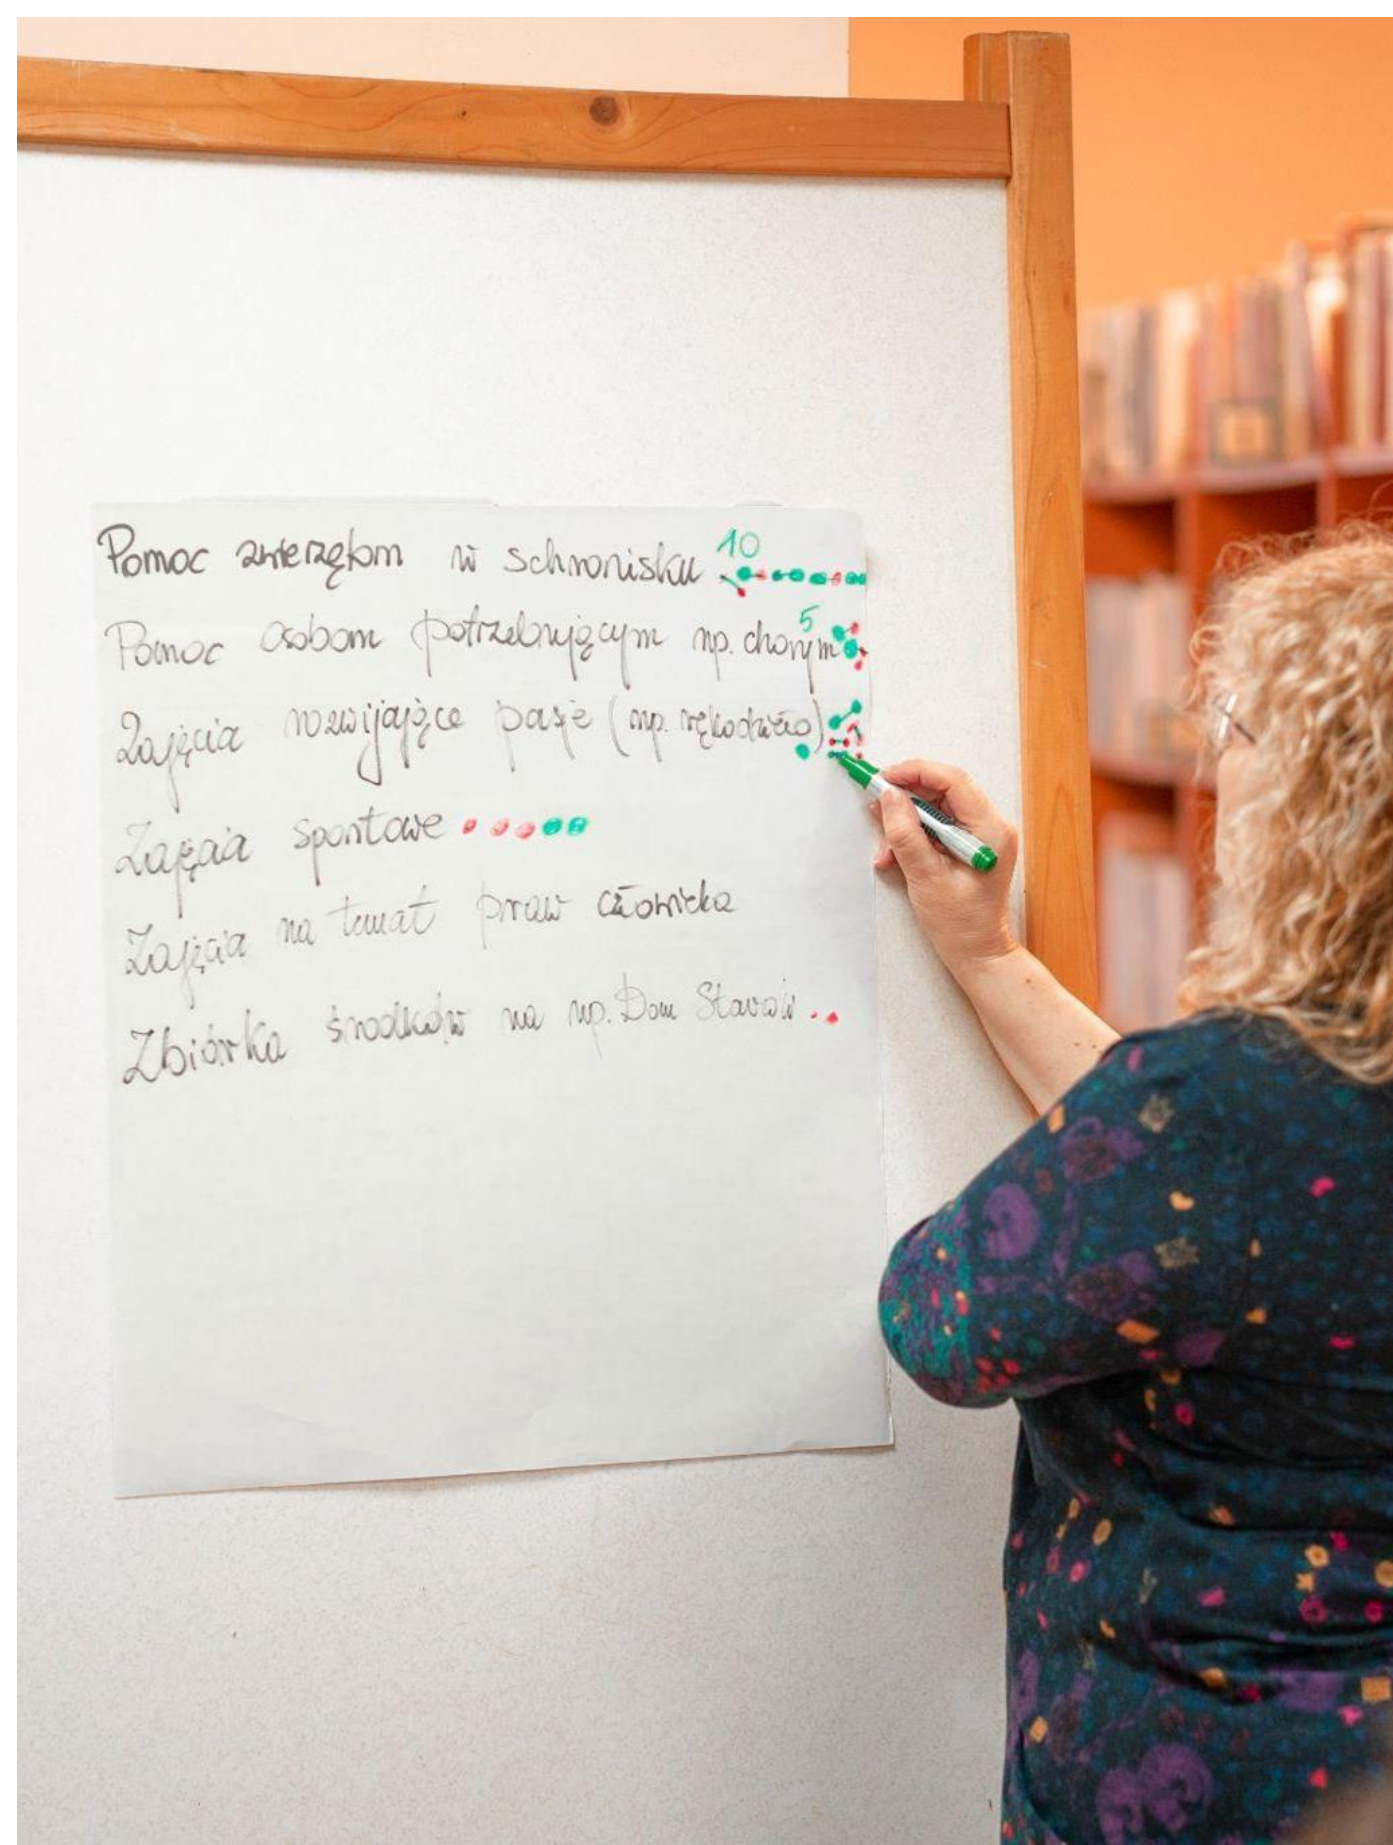 Pomoc zwierzętom w schronisku 10
Pomoc osobom potrzebującym np. chorym 5
Zajęcia rozwijające pasje (np. rękodzieło)
Zajęcia sportowe
Zajęcia na temat praw człowieka
Zbiórka środków na np. Dom Starców